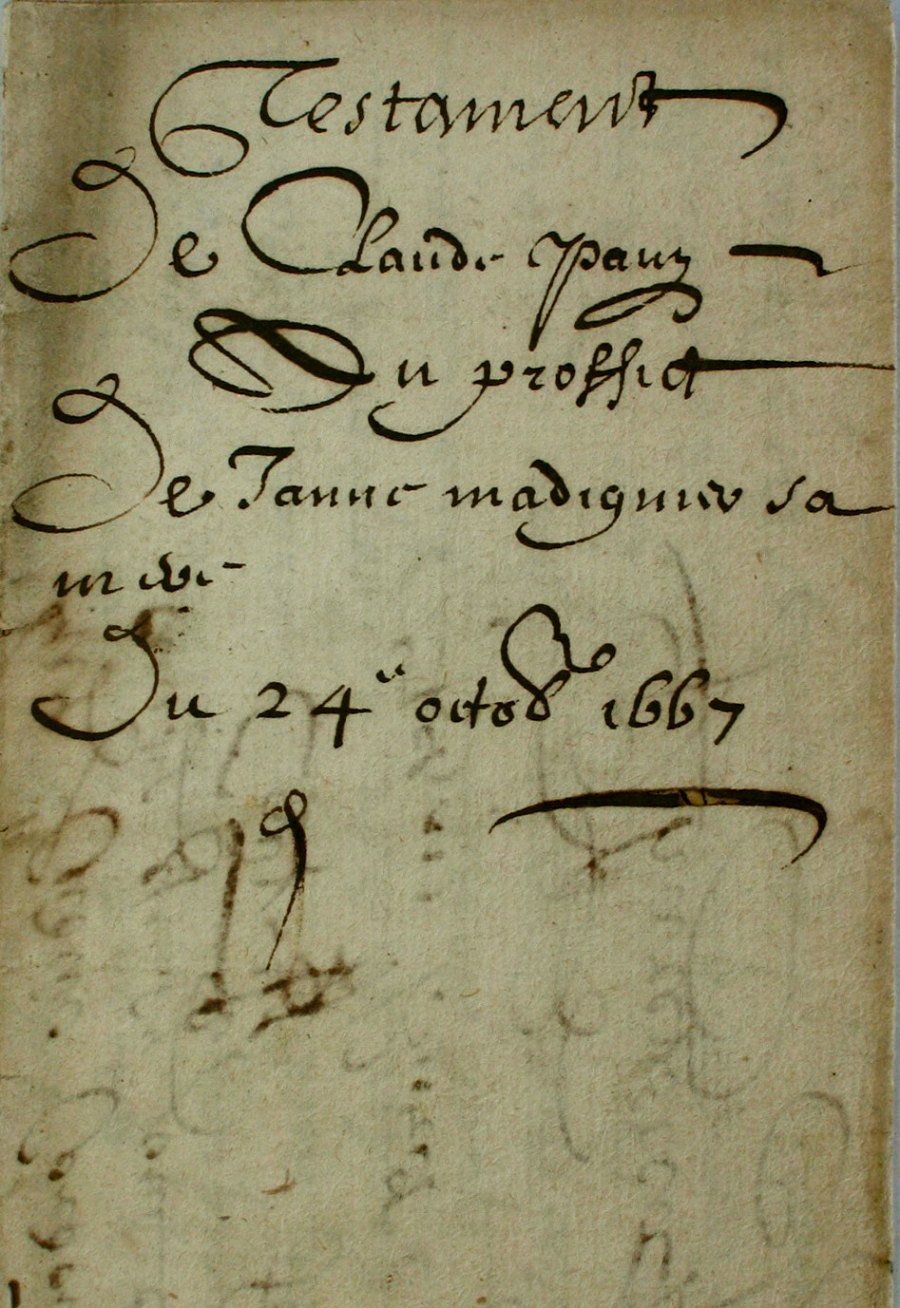 Testament
De Claude pauz
Du proffict
De Janne madignier sa
mere
Du 24e octob 1667